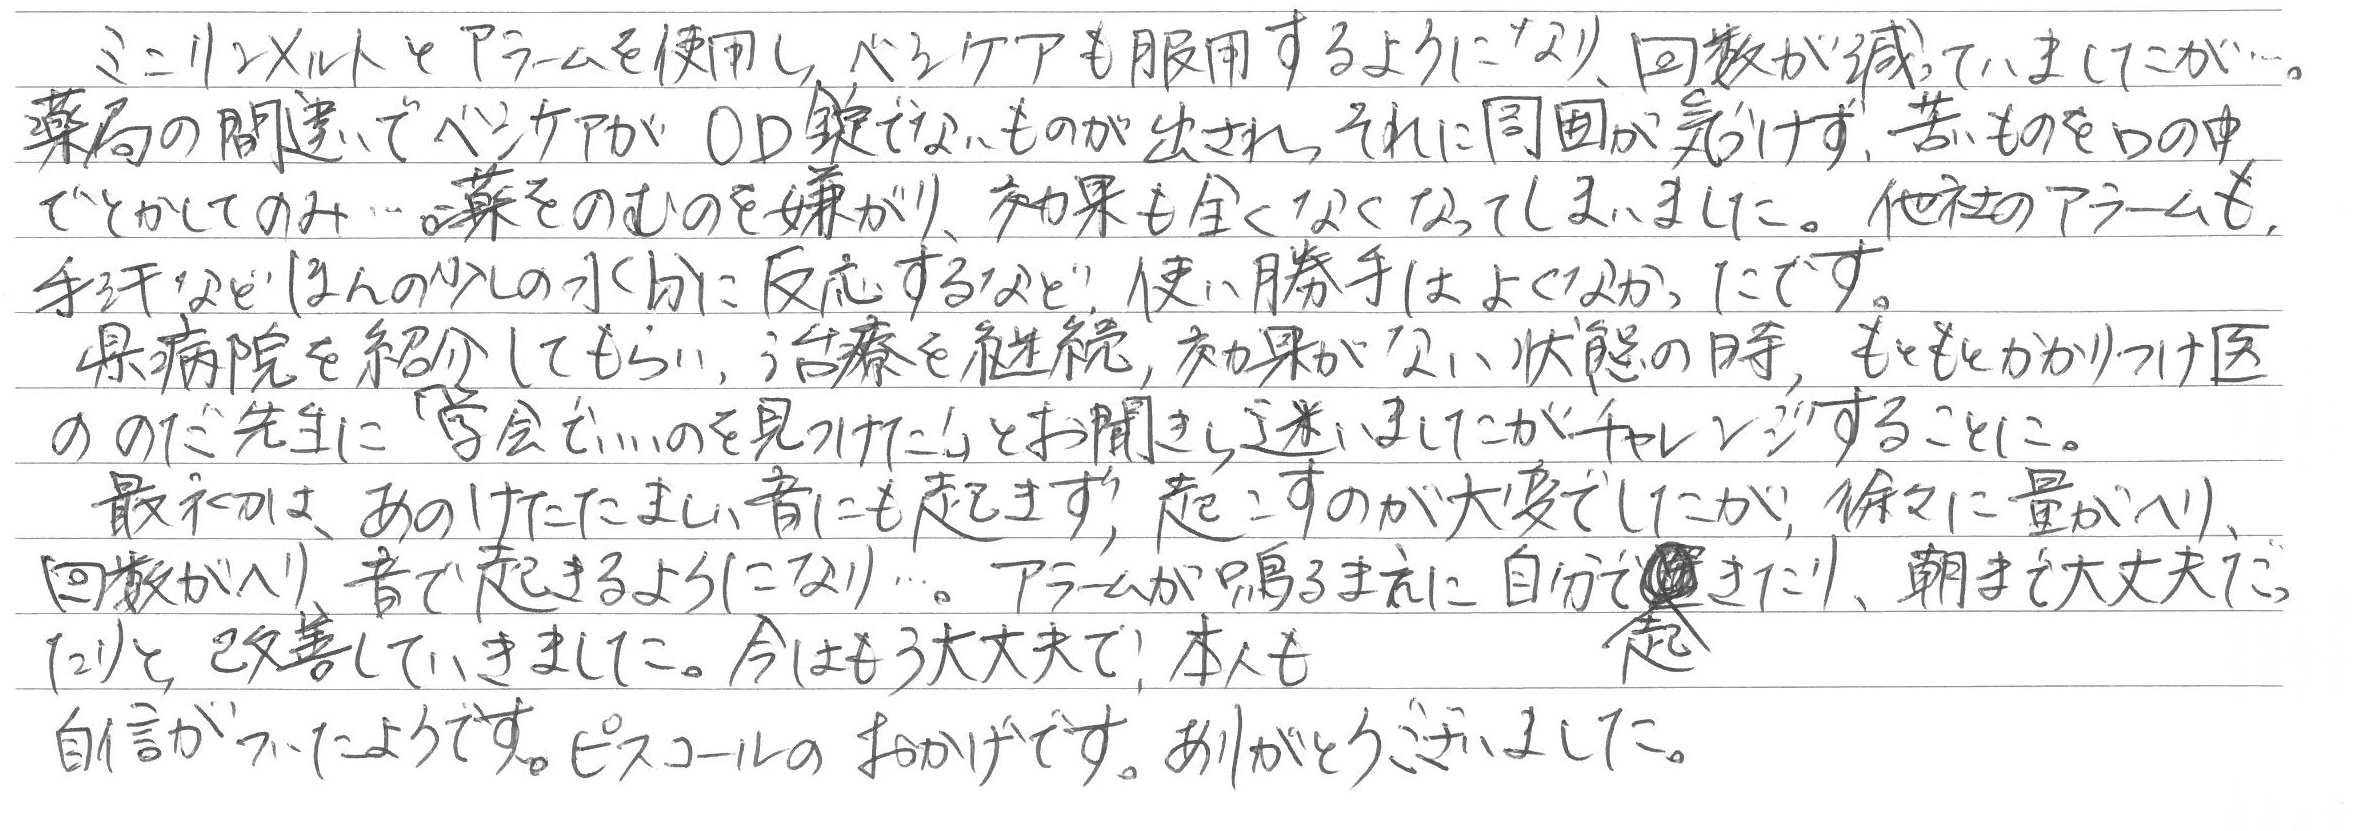 ミニリンメルトとアラームを使用し、ベシケアも服用するようになり、回数が減っていましたが…。
薬局の間違いでベシケアがOD錠でないものが出され、それに周囲が気づけず、苦いものを口の中
でとかしてのみ…。薬をのむのを嫌がり、効果も全くなくなってしまいました。他社のアラームも、
手汗などほんの少しの水分に反応するなど、使い勝手はよくなかったです。
県病院を紹介してもらい、治療を継続、効果がない状態の時、もともとかかりつけ医
ののだ先生に「学会でいいのを見つけた!」とお聞きし、迷いましたがチャレンジすることに。
最初は、あのけたたましい音にも起きず、起こすのが大変でしたが、徐々に量がへり、
回数がへり、音で起きるようになり…。アラームが鳴るまえに自分で起きたり、朝まで大丈夫だっ
たりと、改善していきました。今はもう大丈夫で、本人も
自信がついたようです。ピスコールのおかげです。ありがとうございました。